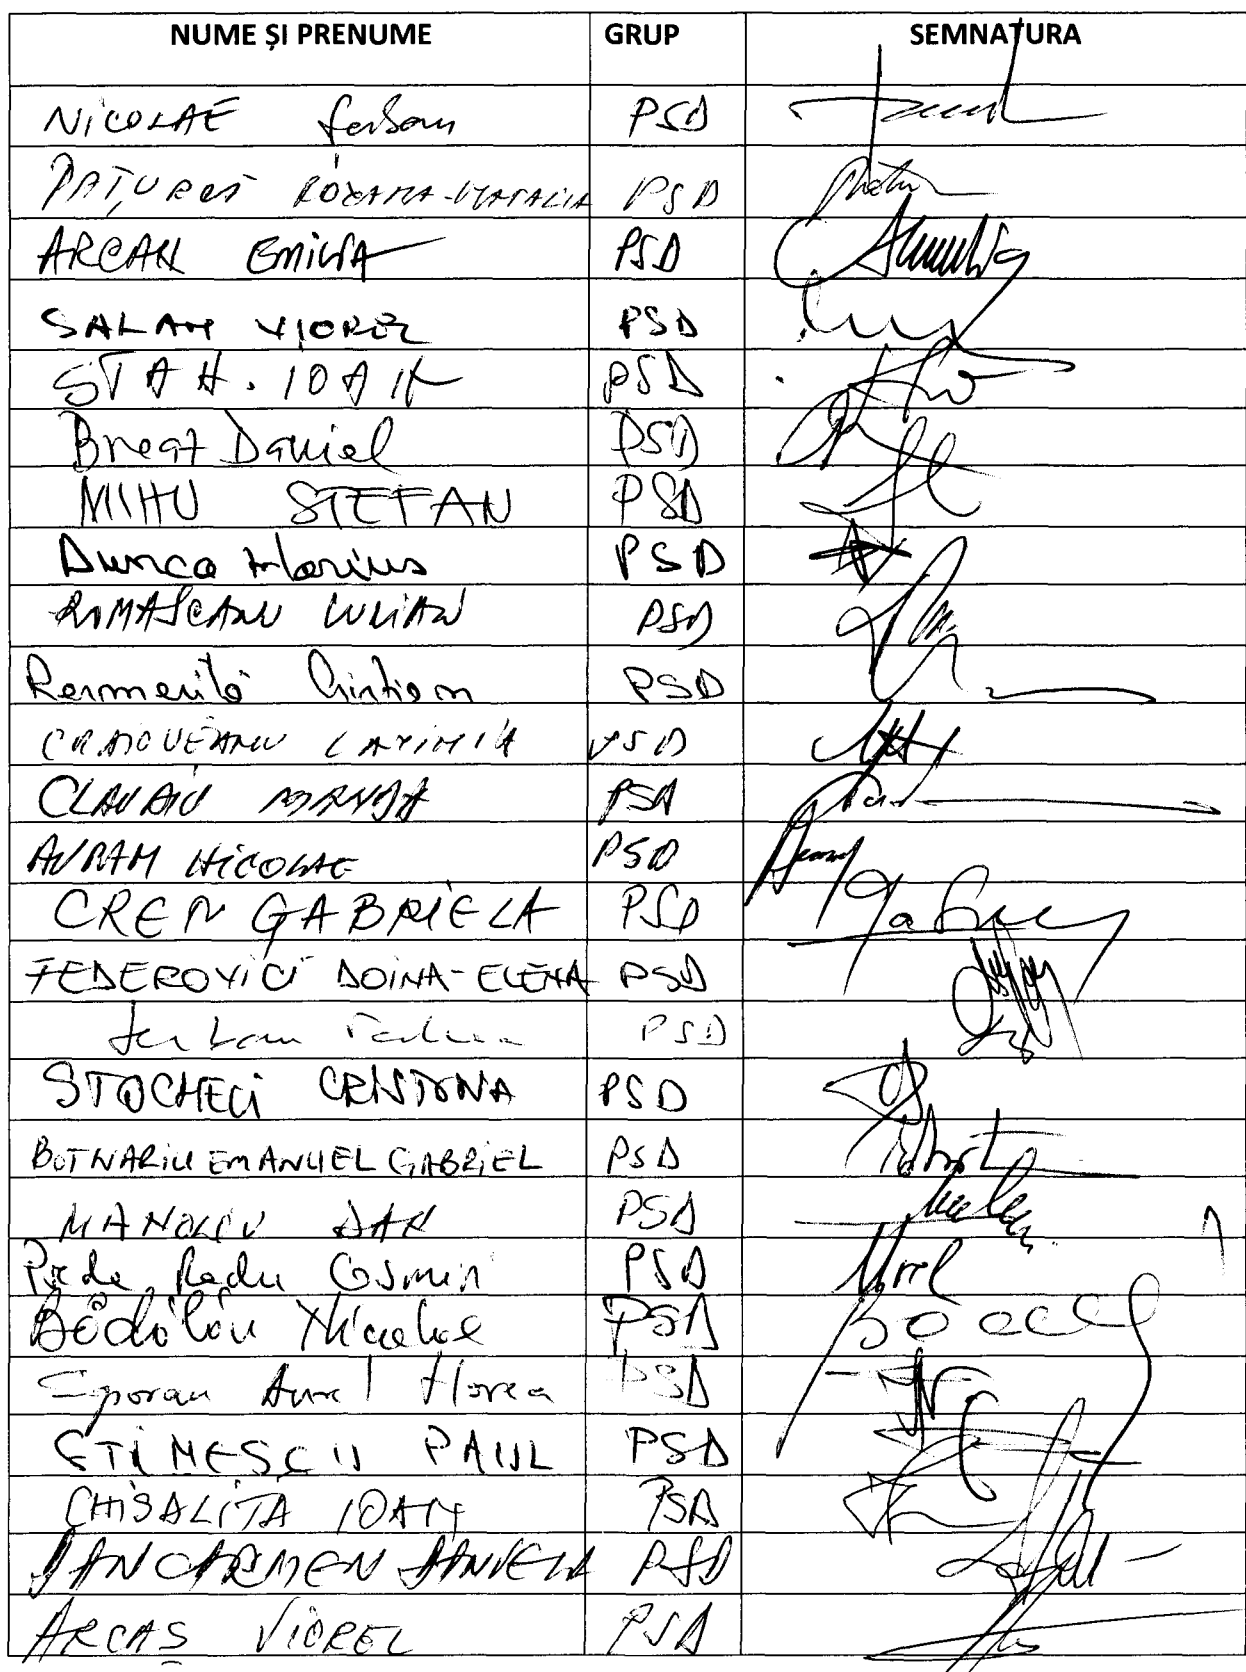 NUME ȘI PRENUME GRUP SEMNATURA
NICOLAE Serban PSD
PAȚURET ROXANA-NATALIA PSD
ARCAN EMILIA PSD
SALAN VIOREL PSD
STAN. IOAN PSD
Breaz Daniel PSD
MIHU STEFAN PSD
Dunca Marius PSD
ROMASCANU LUCIAN PSD
Resmeriță Cristian PSD
CRAIOVEANU LAVINIA PSD
CLAUDIU MANDA PSD
AVRAM NICOLAE PSD
CREȚU GABRIELA PSD
FEDEROVICI DOINA-ELENA PSD
Serban PSD
STOCHECI CRISTINA PSD
BOTNARIU EMANUEL GABRIEL PSD
MANOLIU DAN PSD
Preda Radu Cosmin PSD
Bădălău Niculae PSD
Soporan Aurel Horea PSD
STĂNESCU PAUL PSD
CHISALITA IOAN PSD
DAN CARMEN DANIELA PSD
ARCAȘ VIOREL PSD